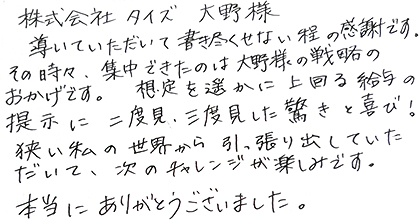 株式会社 タイズ 大野様
導いていただいて書き尽くせない程の感謝です。
その時々、集中できたのは大野様の戦略の
おかげです。 想定を遥かに上回る給与の
提示に 二度見、三度見した驚きと喜び!
狭い私の世界から引っ張り出していた
だいて、次のチャレンジが楽しみです。
本当にありがとうございました。